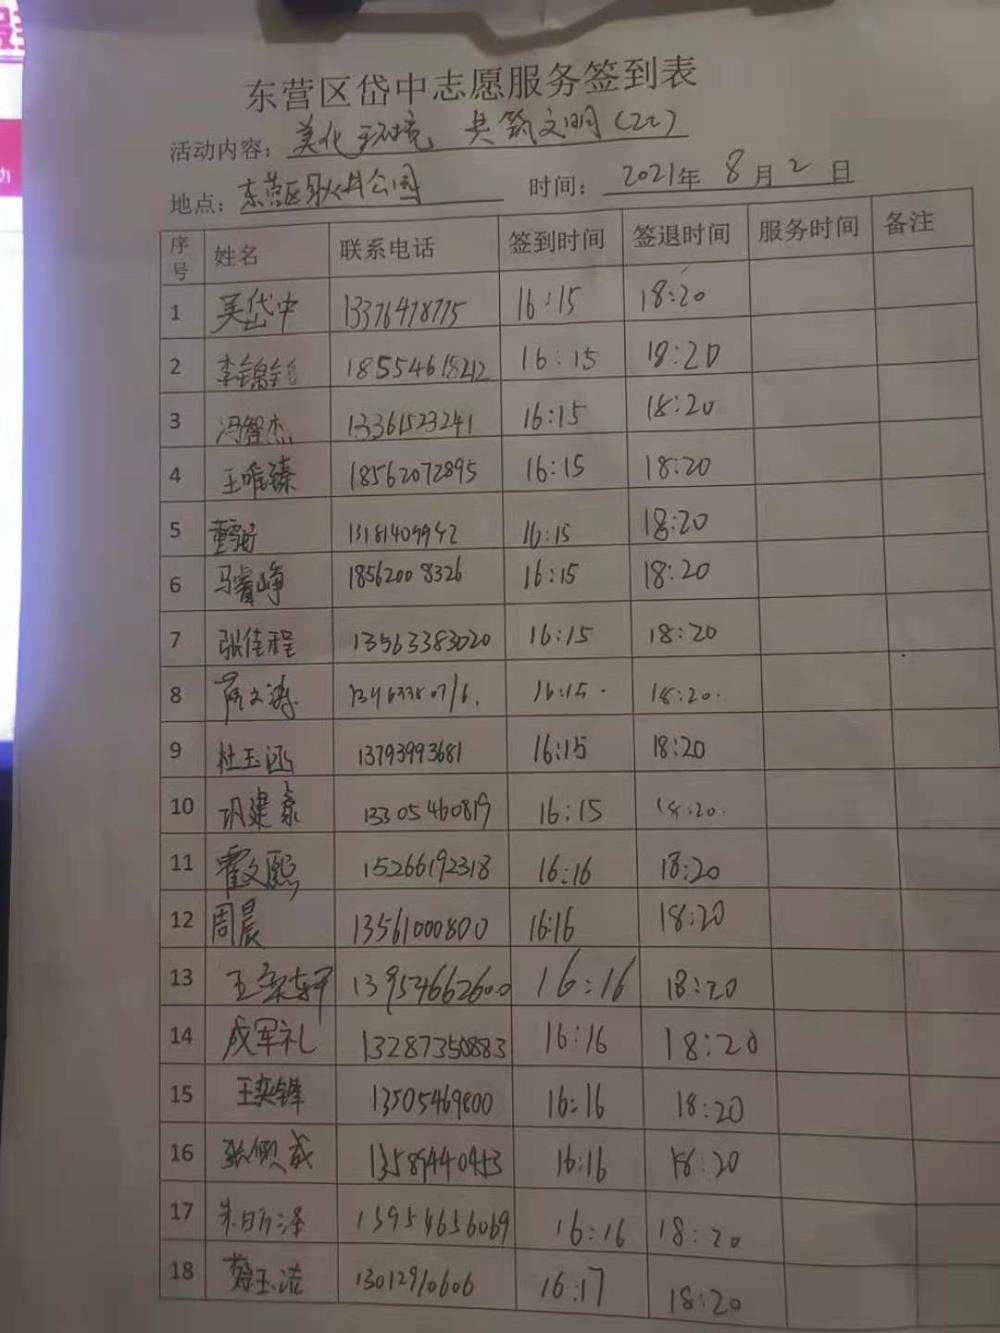 东营区岱中志愿服务签到表
活动内容：美化环境 共筑文明（2C）
地点：东营区耿井公园 时间：2021年 8月2日
序号 姓名 联系电话 签到时间 签退时间 服务时间 备注
1 吴岱中 13376478775 16:15 18:20
2 李锦 18554618212 16:15 18:20
3 冯智杰 13361523241 16:15 18:20
4 王唯臻 18562072895 16:15 18:20
5 16:15 18:20
6 马睿峥 18562008326 16:15 18:20
7 张佳程 13563383020 16:15 18:20
8 16:15 18:20
9 杜玉涵 13793993681 16:15 18:20
10 巩建豪 13305460819 16:15 18:20
11 霍文熙 15266192318 16:16 18:20
12 周晨 13561000800 16:16 18:20
13 王梁轩 13954662600 16:16 18:20
14 成军礼 13287350883 16:16 18:20
15 王奕锋 13505469800 16:16 18:20
16 16:16 18:20
17 朱昕泽 13954656069 16:16 18:20
18 蔡玉洁 13012910606 16:17 18:20